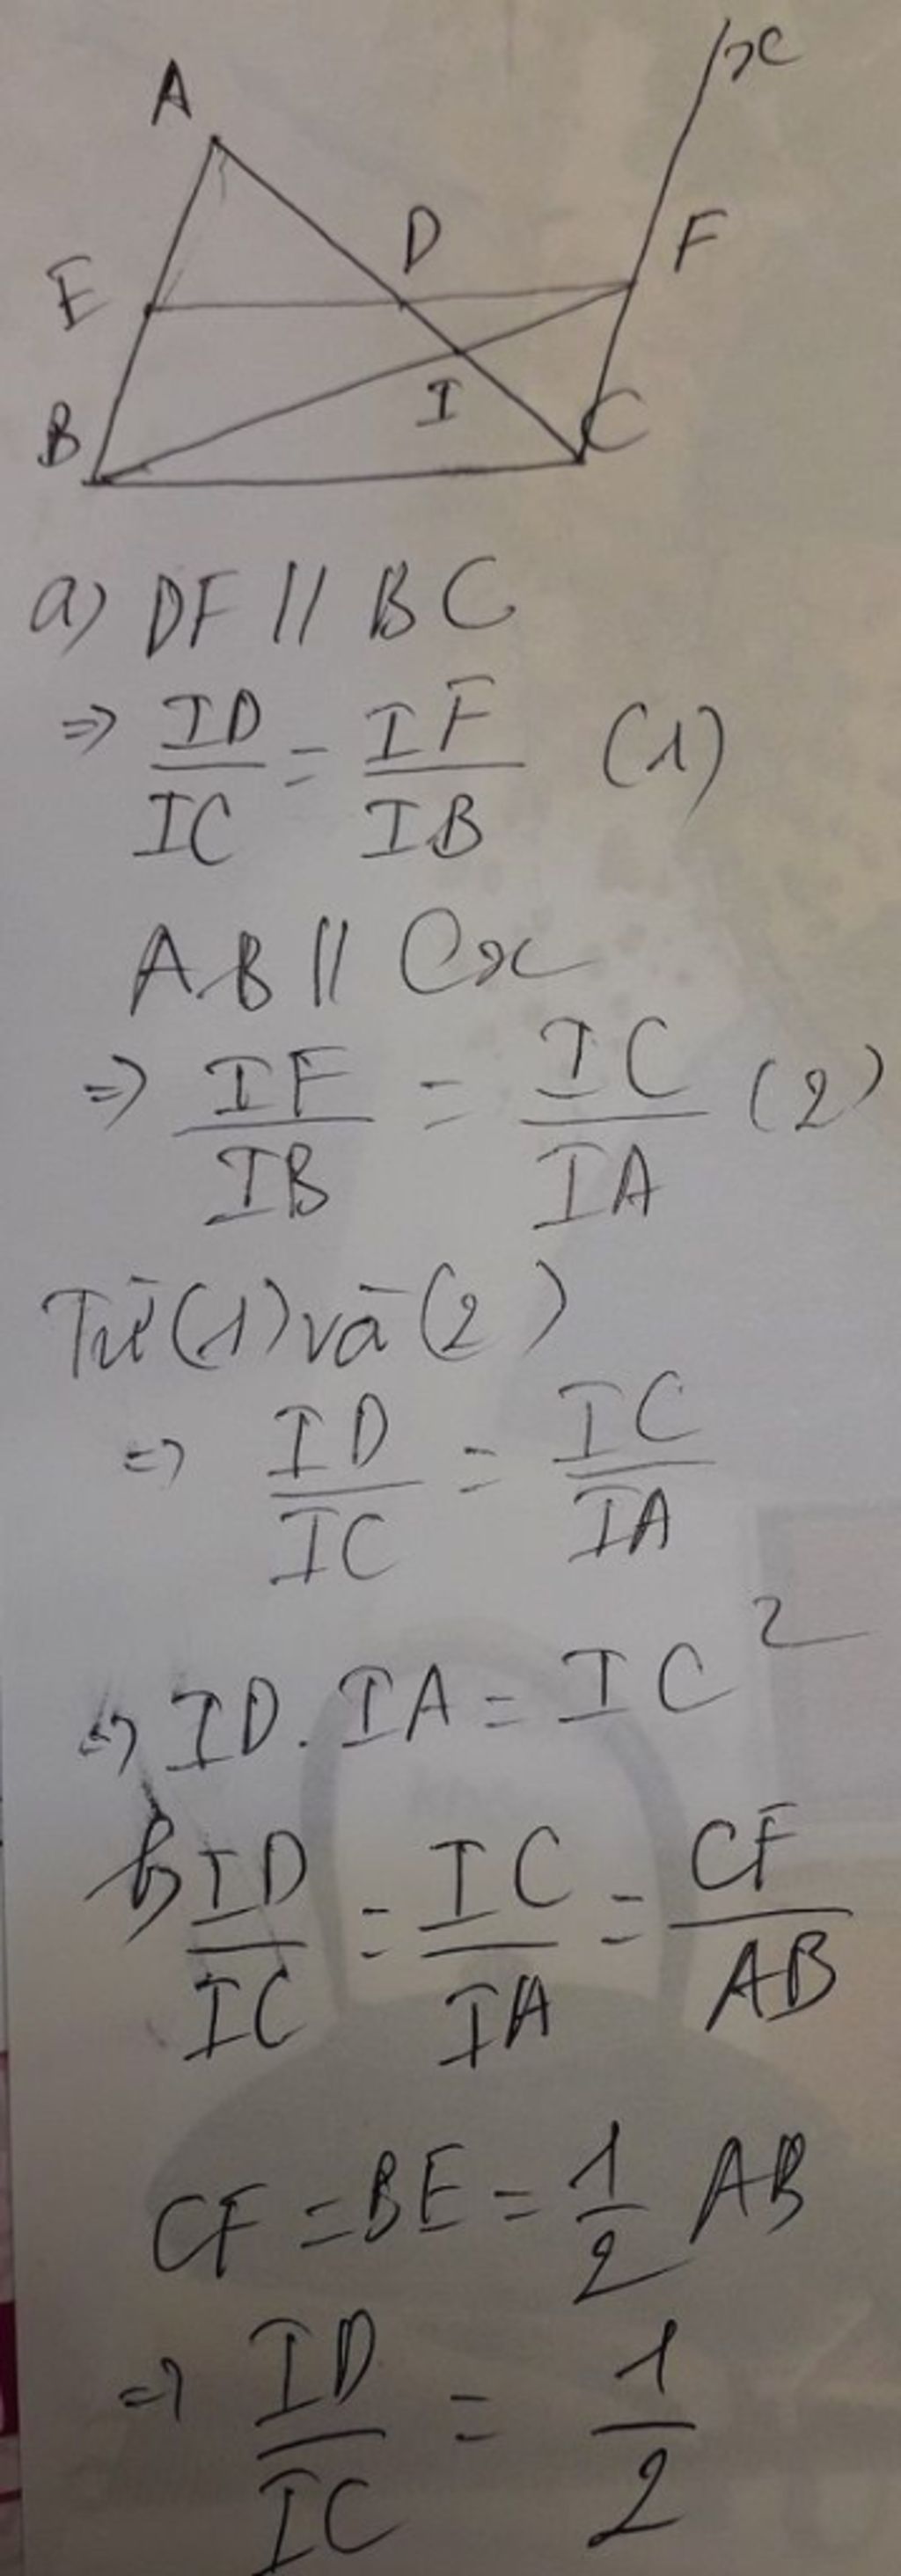 A
x
D
F
E
I
B
C
a) DF // BC
=> ID/IC = IF/IB (1)
AB // Cx
=> IF/IB = IC/IA (2)
Từ (1) và (2)
=> ID/IC = IC/IA
<=> ID . IA = IC²
b) ID/IC = IC/IA = CF/AB
CF = BE = 1/2 AB
=> ID/IC = 1/2